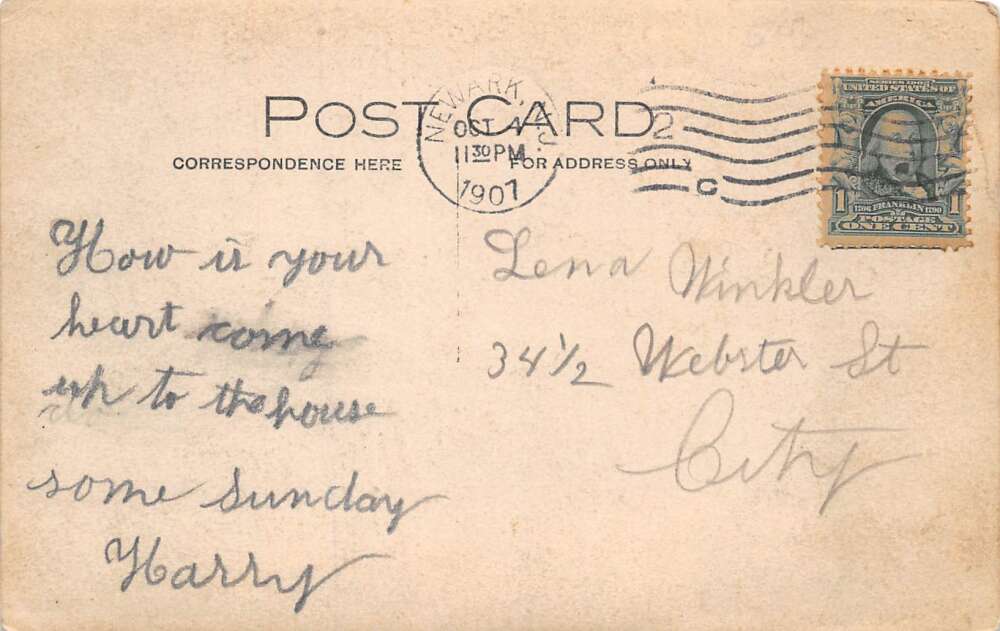 POST CARD
CORRESPONDENCE HERE
FOR ADDRESS ONLY
NEWARK, N.J.
OCT 4
11 30 PM
1907
2
C
SERIES 1902
UNITED STATES OF
AMERICA
1 1
1706 FRANKLIN 1790
POSTAGE
ONE CENT
How is your
heart come
up to the house
some Sunday
Harry
Lena Winkler
34 1/2 Webster St
City